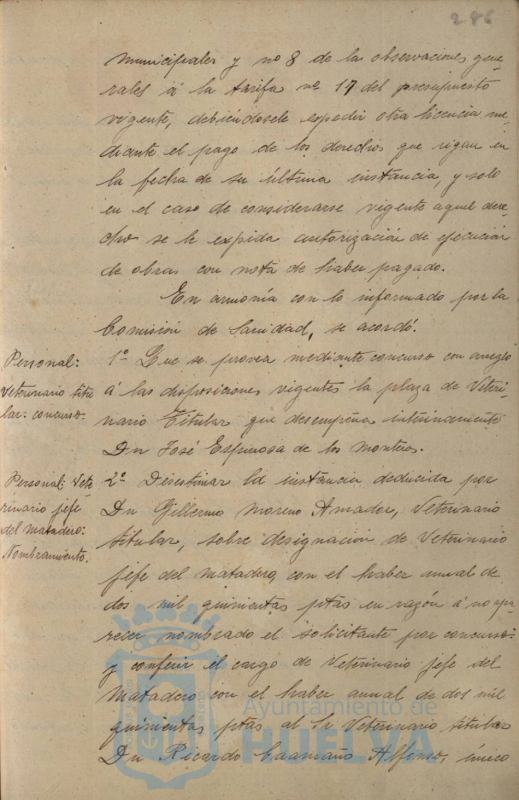 286
municipales y nº 8 de la observaciones gene-
rales á la tarifa nº 17 del presupuesto
vigente, debiéndosele expedir otra licencia me-
diante el pago de los derechos que rigen en
la fecha de su última instancia, y solo
en el caso de considerarse vigente aquel dere-
cho se le expida autorización de ejecución
de obras con nota de haber pagado.
En armonía con lo informado por la
Comisión de Sanidad, se acordó:
Personal:
Veterinario titu
lar: concurso.
1º Que se provea mediante concurso con arreglo
á las disposiciones vigentes la plaza de Veteri-
nario Titular que desempeña interinamente
Dn José Espinosa de los Monteros.
Personal: Vete
rinario jefe
del Matadero:
Nombramiento.
2º Desestimar la instancia deducida por
Dn Gillermo Moreno Amador, Veterinario
titular, sobre designación de Veterinario
jefe del Matadero, con el haber anual de
dos mil quinientas ptas en razón á no apa-
recer nombrado el solicitante por concurso:
y conferir el cargo de Veterinario jefe del
Matadero con el haber anual de dos mil
quinientas ptas al Sr Veterinario titular
Dn Ricardo Caamaño Alfonso, único
Ayuntamiento de
HUELVA